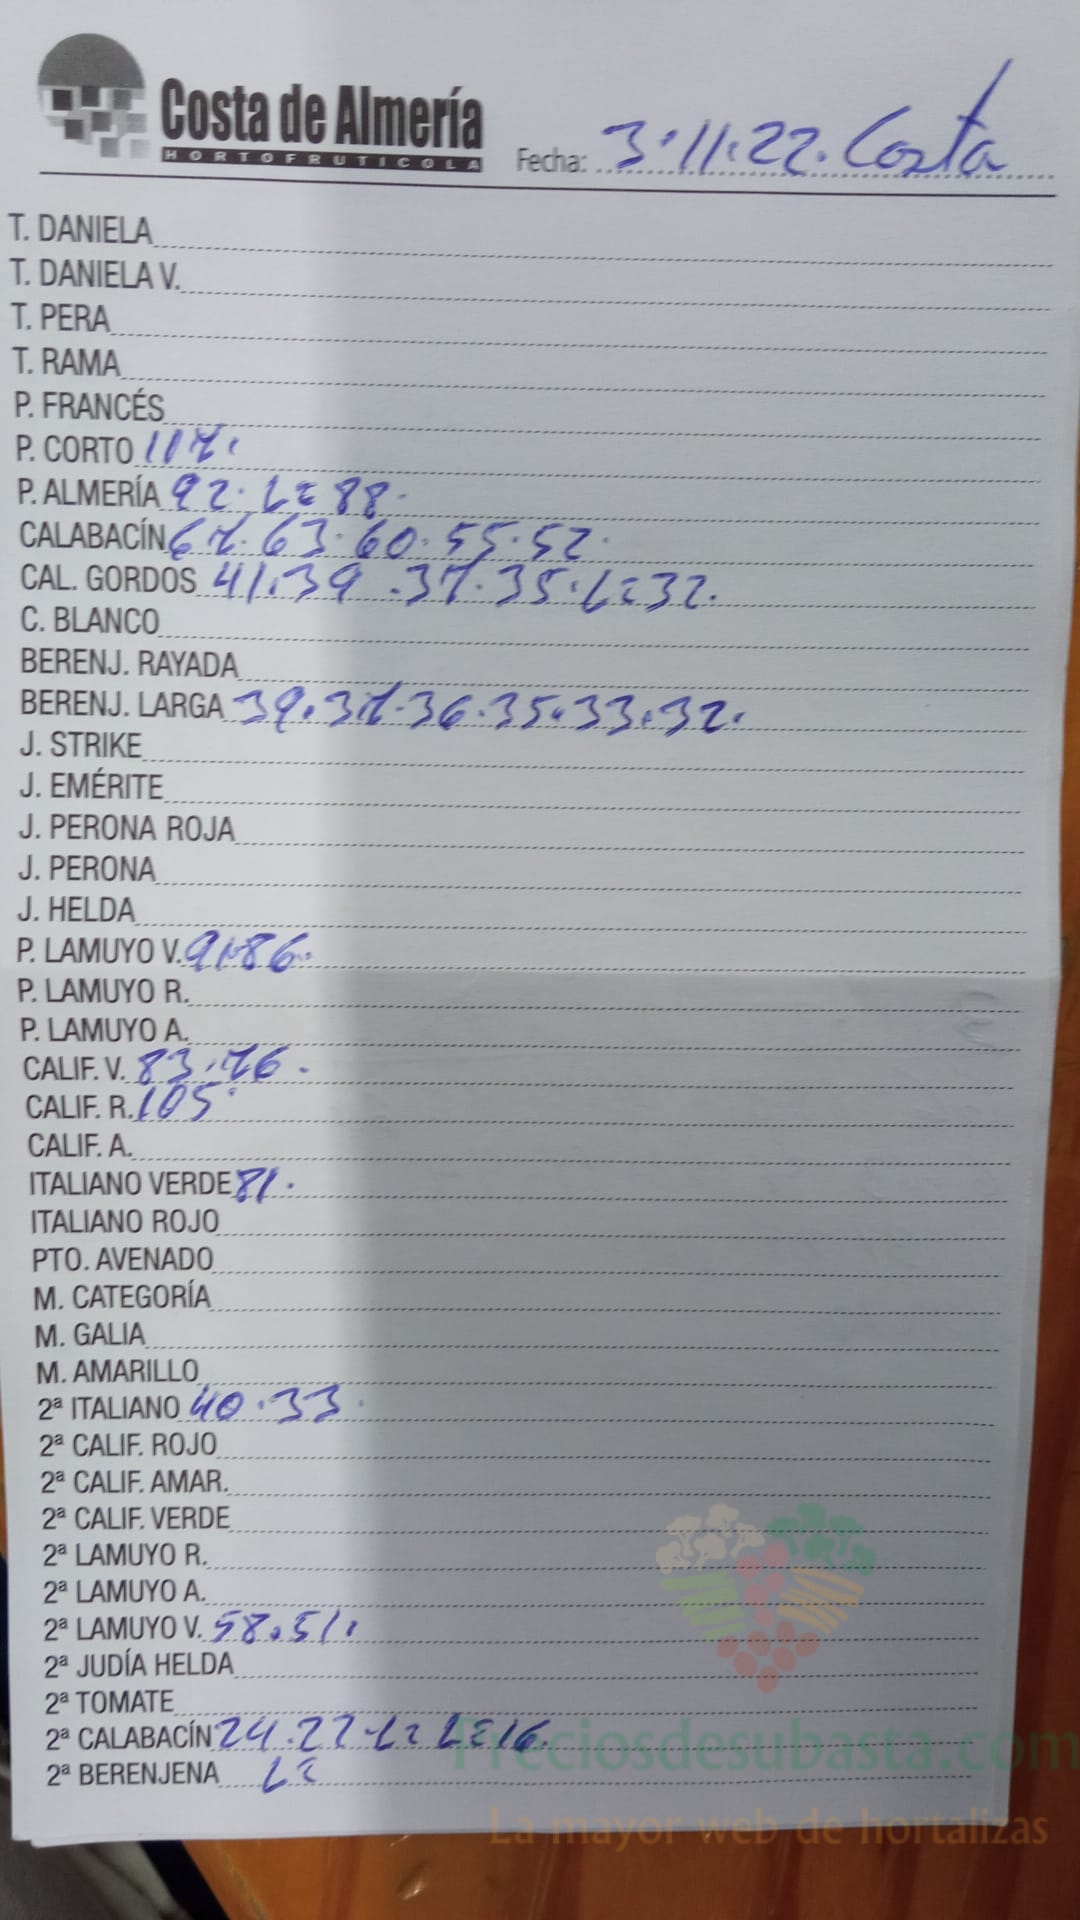 Costa de Almería
HORTOFRUTICOLA
Fecha: 3.11.22. Costa
T. DANIELA
T. DANIELA V.
T. PERA
T. RAMA
P. FRANCÉS
P. CORTO 117.
P. ALMERÍA 92. L= 88.
CALABACÍN 67. 63. 60. 55. 52.
CAL. GORDOS 41. 39. 37. 35. L= 32.
C. BLANCO
BERENJ. RAYADA
BERENJ. LARGA 39. 37. 36. 35. 33. 32.
J. STRIKE
J. EMÉRITE
J. PERONA ROJA
J. PERONA
J. HELDA
P. LAMUYO V. 91. 86.
P. LAMUYO R.
P. LAMUYO A.
CALIF. V. 83. 76.
CALIF. R. 105.
CALIF. A.
ITALIANO VERDE 81.
ITALIANO ROJO
PTO. AVENADO
M. CATEGORÍA
M. GALIA
M. AMARILLO
2ª ITALIANO 40. 33.
2ª CALIF. ROJO
2ª CALIF. AMAR.
2ª CALIF. VERDE
2ª LAMUYO R.
2ª LAMUYO A.
2ª LAMUYO V. 58. 51.
2ª JUDÍA HELDA
2ª TOMATE
2ª CALABACÍN 24. 22 L= L= 16.
2ª BERENJENA L=
Preciosdesubasta.com
La mayor web de hortalizas